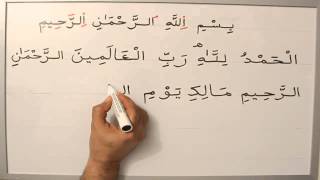 بِسْمِ اللَّهِ الرَّحْمَٰنِ الرَّحِيمِ
الْحَمْدُ لِلَّهِ رَبِّ الْعَالَمِينَ الرَّحْمَٰنِ
الرَّحِيمِ مَالِكِ يَوْمِ الـ